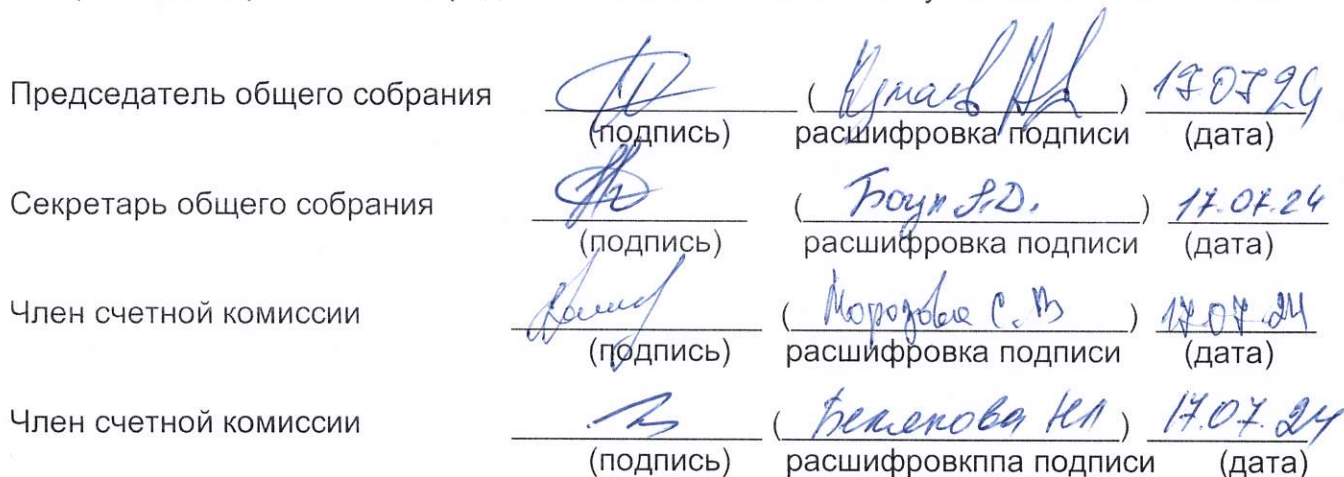 Председатель общего собрания ( ) 17.07.24
(подпись) расшифровка подписи (дата)
Секретарь общего собрания ( ) 17.07.24
(подпись) расшифровка подписи (дата)
Член счетной комиссии ( Морозова С.В ) 17.07.24
(подпись) расшифровка подписи (дата)
Член счетной комиссии ( НП ) 17.07.24
(подпись) расшифровкппа подписи (дата)